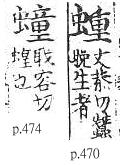 蝩
丈恭切蠶
晚生者
𧑆
職容切
蝗也
p.474
p.470